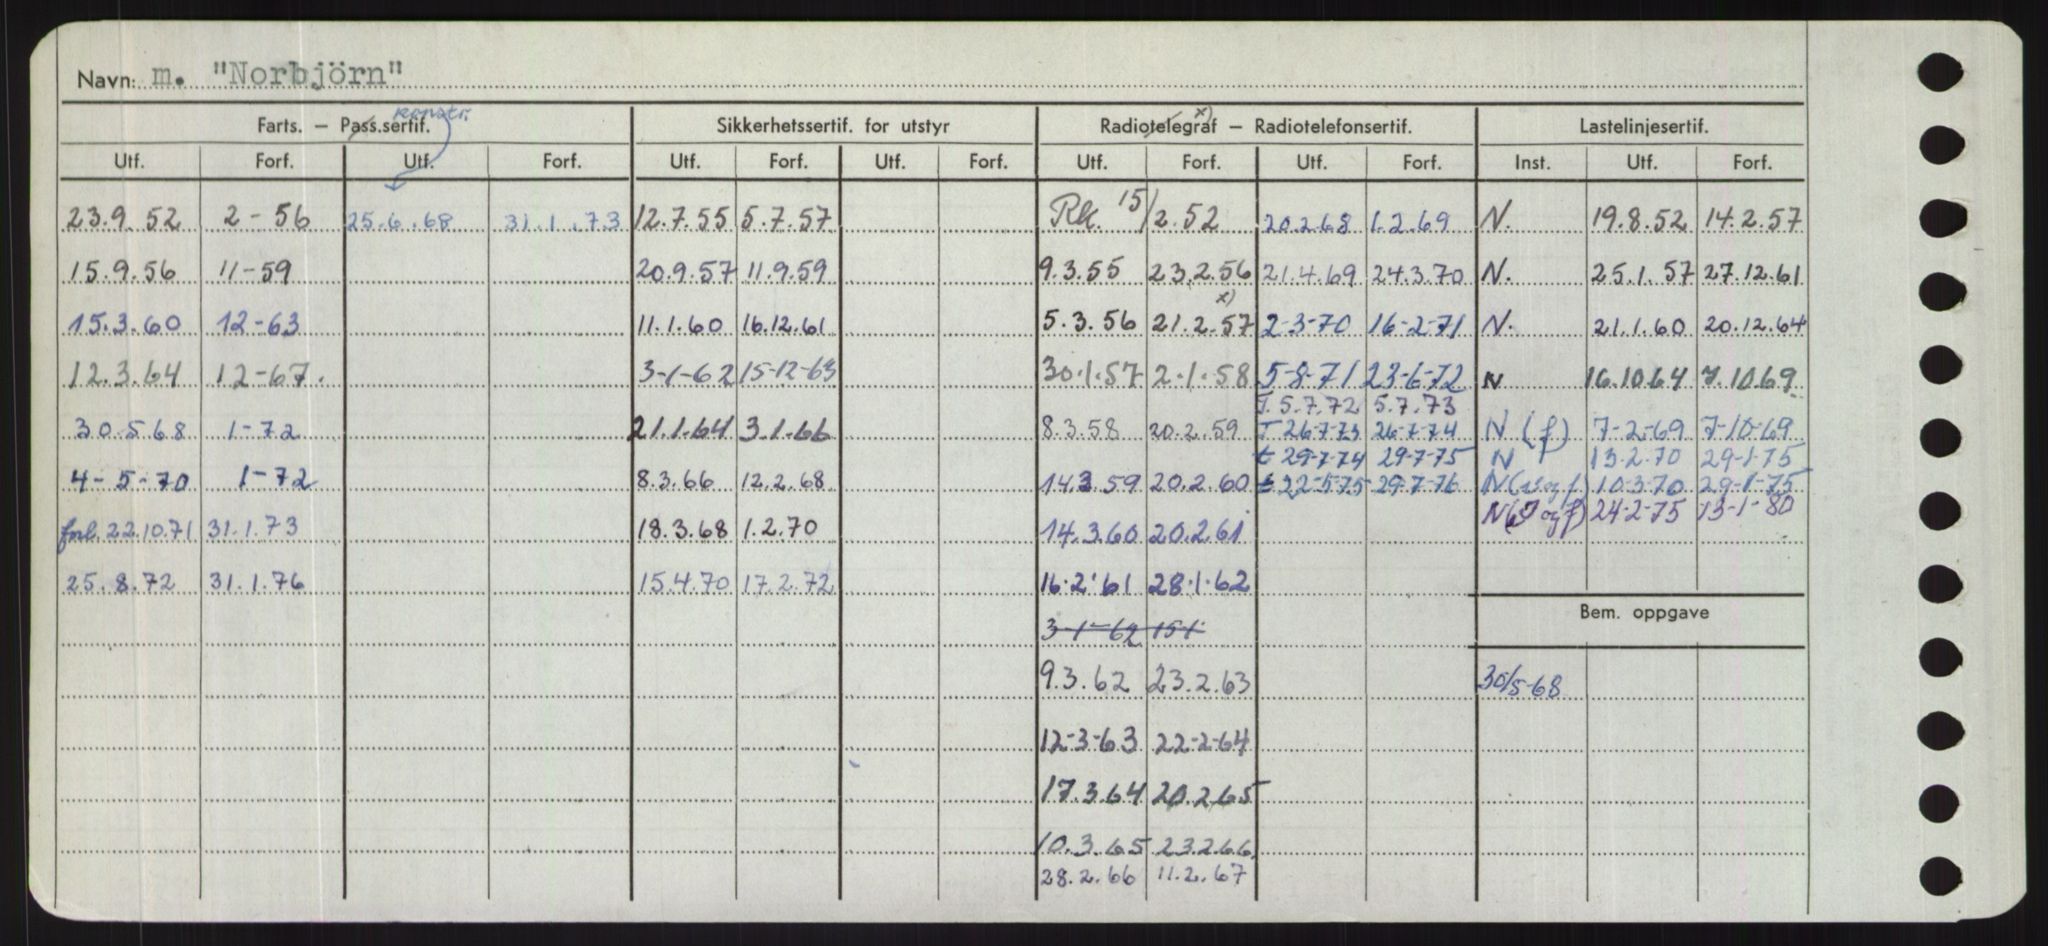 Navn: m. "Norbjörn"
konstr.
Farts. – Pass.sertif. Sikkerhetssertif. for utstyr Radiotelegraf x) – Radiotelefonsertif. Lastelinjesertif.
Utf. Forf. Utf. Forf. Utf. Forf. Utf. Forf. Utf. Forf. Utf. Forf. Inst. Utf. Forf.
23.9.52 2-56 25.6.68 31.1.73 12.7.55 5.7.57 Rk. 15/2.52 20.2.68 1.2.69 N. 19.8.52 14.2.57
15.9.56 11-59 20.9.57 11.9.59 9.3.55 23.2.56 21.4.69 24.3.70 N. 25.1.57 27.12.61
15.3.60 12-63 11.1.60 16.12.61 5.3.56 21.2.57 x) 2-3-70 16-2-71 N. 21.1.60 20.12.64
12.3.64 12-67. 3-1-62 15-12-63 30.1.57 2.1.58 5-8-71 23-6-72 N 16.10.64 7.10.69
T. 5.7.72 5.7.73
30.5.68 1-72 21.1.64 3.1.66 8.3.58 20.2.59 T 26-7-73 26-7-74 N (f) 7-2-69 7-10-69
t 29-7-74 29-7-75 N 13.2.70 29-1-75
4-5-70 1-72 8.3.66 12.2.68 14.3.59 20.2.60 t 22-5-75 29-7-76 10-3-70 29-1-75
forl. 22.10.71 31.1.73 18.3.68 1.2.70 14.3.60 20.2.61 24-2-75 13-1-80
25.8.72 31.1.76 15.4.70 17.2.72 16.2.61 28.1.62
Bem. oppgave
3-1-62 15-1
9.3.62 23.2.63 30/5-68
12-3-63 22-2-64
17.3.64 20.2.65
10.3.65 23.2.66
28.2.66 11.2.67